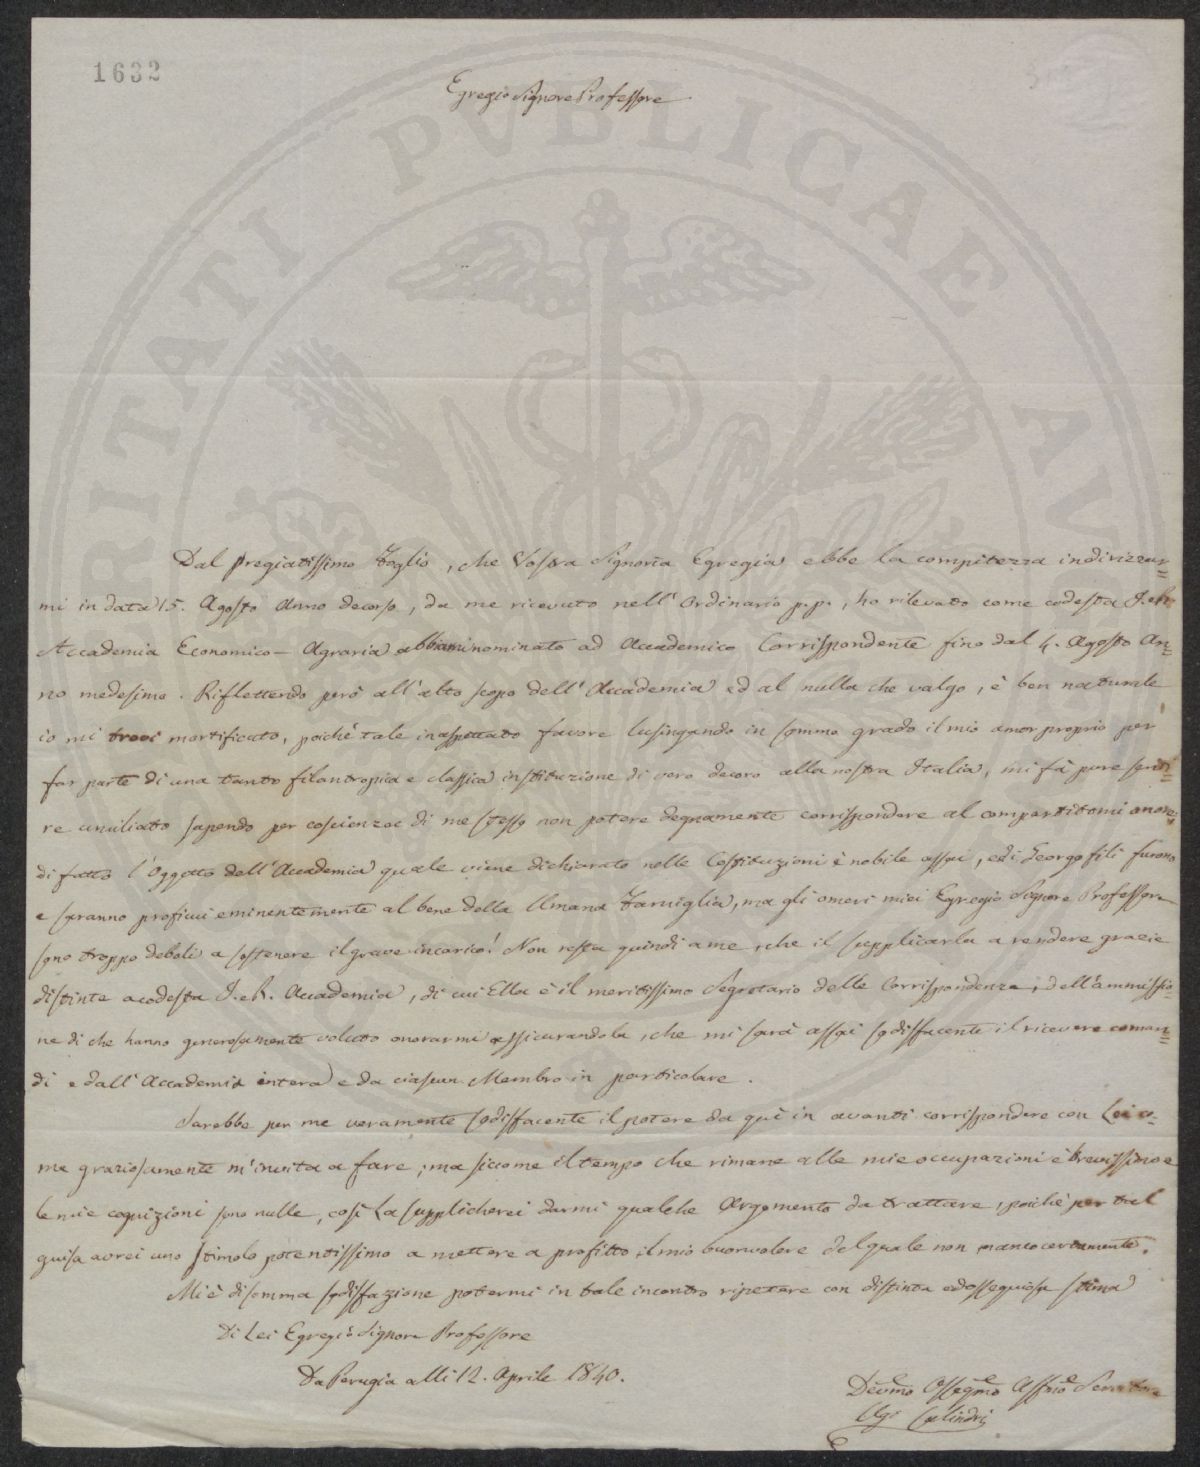 1632
Egregio Signore Professore
PROSPERITATI PVBLICAE AVGENDAE
Dal pregiatissimo Foglio, che Vostra Signoria Egregia ebbe la compitezza indirizzar=
mi in data 15. Agosto Anno decorso, da me ricevuto nell'Ordinario p.p., ho rilevato come codesta I. e R.
Accademia Economico-Agraria abbiami nominato ad Accademico Corrispondente fino dal 4. Agosto An=
no medesimo. Riflettendo però all'alto scopo dell'Accademia ed al nulla che valgo, è ben naturale
io mi trovi mortificato, poichè tale inaspettato favore lusingando in sommo grado il mio amor proprio per
far parte di una tanto filantropica e classica instituzione di vero decoro alla nostra Italia, mi fà pure senti=
re umiliato sapendo per coscienza di me stesso non potere degnamente corrispondere al compartitomi onore;
di fatto l'Oggetto dell'Accademia quale viene dichiarato nelle Costituzioni è nobile assai, ed i Georgofili furono
e saranno proficui eminentemente al bene della Umana Famiglia, ma gli omeri miei Egregio Signore Professore
sono troppo deboli a sostenere il grave incarico! Non resta quindi a me, che il supplicarla a rendere grazie
distinte a codesta I. e R. Accademia, di cui Ella è il meritissimo Segretario delle Corrispondenze, dell'ammissio=
ne di che hanno generosamente voluto onorarmi assicurandola, che mi sarà assai sodisfacente il ricevere coman=
di e dall'Accademia intera e da ciascun Membro in particolare.
Sarebbe per me veramente sodisfacente il potere da quì in avanti corrispondere con Lei co=
me graziosamente m'invita a fare, ma siccome il tempo che rimane alle mie occupazioni è brevissimo e
le mie cognizioni sono nulle, così La supplicherei darmi qualche Argomento da trattare, poichè per tal
guisa avrei uno stimolo potentissimo a mettere a profitto il mio buon volere del quale non manco certamente.
Mi è di somma sodisfazione potermi in tale incontro ripetere con distinta ed ossequiosa stima
Di Lei Egregio Signore Professore
Da Perugia alli 12. Aprile 1840.
Devmo Ossegmo Affmo Servitore
Calindri